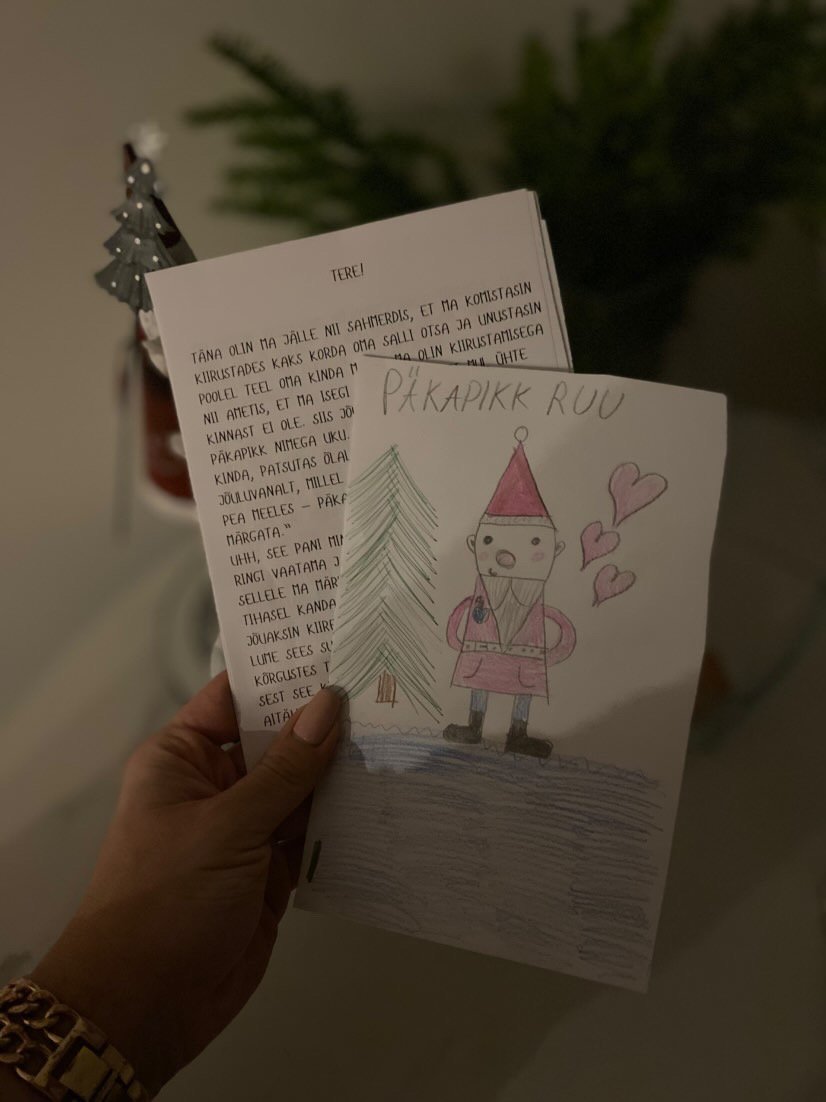 TERE!
TÄNA OLIN MA JÄLLE NII SAHMERDIS, ET MA KOMISTASIN
KIIRUSTADES KAKS KORDA OMA SALLI OTSA JA UNUSTASIN
POOLEL TEEL OMA KINDA MA OLIN KIIRUSTAMISEGA
NII AMETIS, ET MA ISEGI MUL ÜHTE
KINNAST EI OLE. SIIS
PÄKAPIKK NIMEGA UKU.
KINDA, PATSUTAS
JÕULUVANALT, MILLEL
PEA MEELES –
MÄRGATA."
UHH, SEE PANI
RINGI VAATAMA
SELLELE MA
TIHASEL KANDA
JÕUAKSIN
LUME SEES
KÕRGUSTES
SEST SEE
PÄKAPIKK RUU